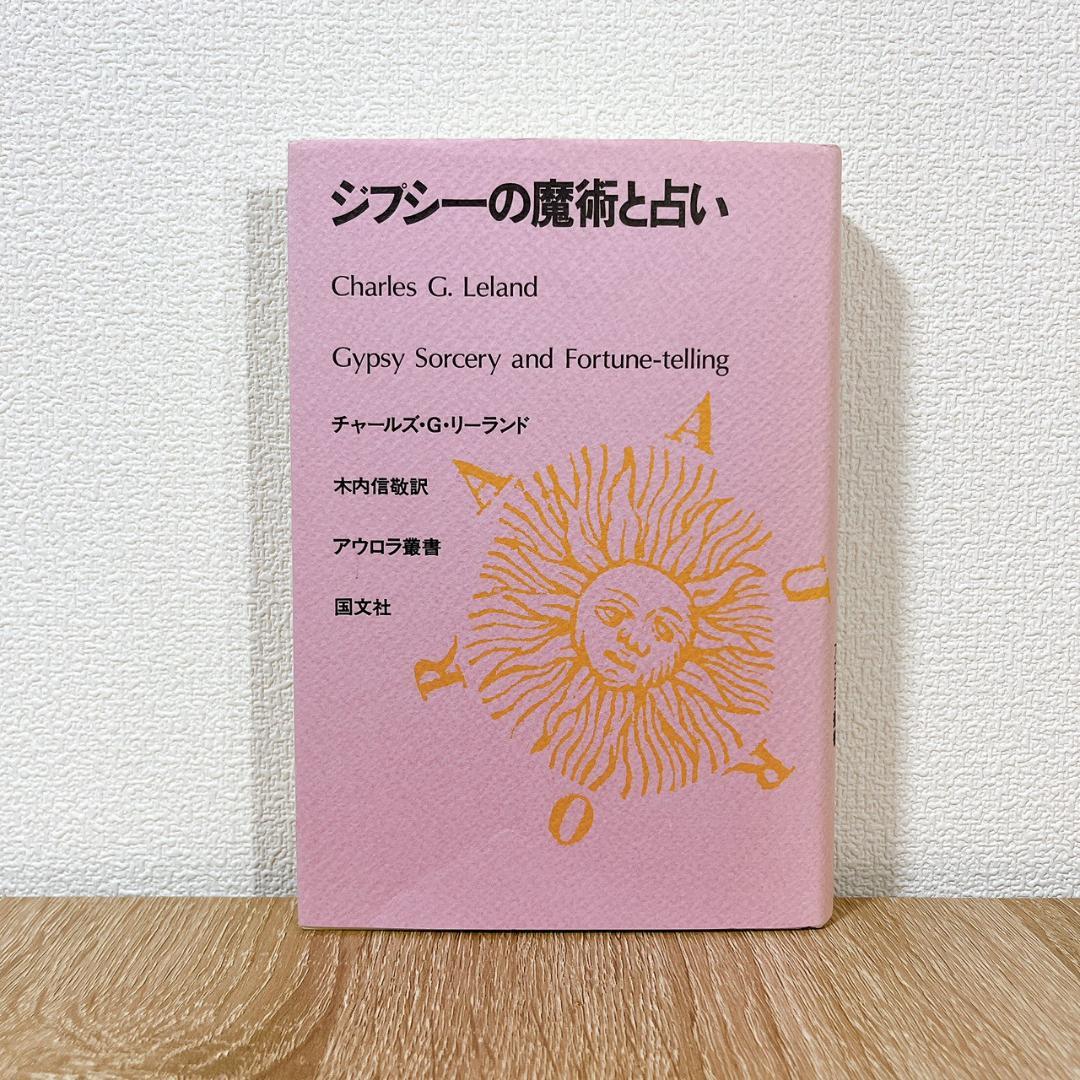 ジプシーの魔術と占い
Charles G. Leland
Gypsy Sorcery and Fortune-telling
チャールズ・G・リーランド
木内信敬訳
アウロラ叢書
国文社
A
U
R
O
R
A